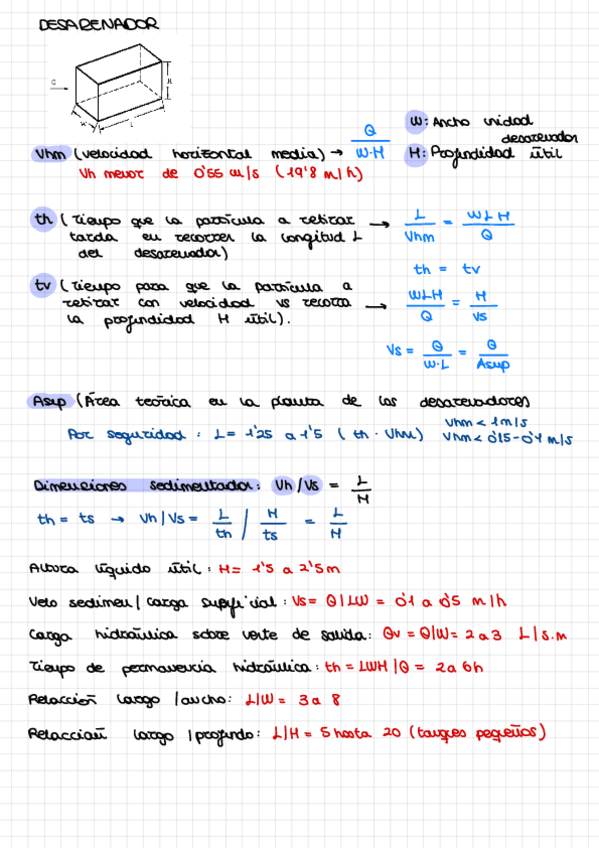 DESARENADOR
Q
H
W
L
W: Ancho unidad desarenador
H: Profundidad útil
Vhm (velocidad horizontal media) → Q / W·H
Vh menor de 0'55 m/s (19'8 m/h)
th (Tiempo que la partícula a retirar → L / Vhm = WLH / Q
tarda en recorrer la longitud L
del desarenador)
th = tv
tv (Tiempo para que la partícula a
retirar con velocidad vs recorra → WLH / Q = H / vs
la profundidad H útil).
Vs = Q / W·L = Q / Asup
Asup (Área teórica en la planta de los desarenadores)
Por seguridad: L = 1'25 a 1'5 (th · Vhm) Vhm < 1m/s
Vhm < 0'15-0'4 m/s
Dimensiones sedimentador: Vh/Vs = L / H
th = ts → Vh/Vs = L / th / H / ts = L / H
Altura líquido útil: H = 1'5 a 2'5m
Velo sedimen/carga superficial: Vs = Q/LW = 0'1 a 0'5 m/h
Carga hidraúlica sobre verte de salida: Qv = Q/W = 2 a 3 L/s.m
Tiempo de permanencia hidraúlica: th = LWH/Q = 2 a 6h
Relaccion largo/ancho: L/W = 3 a 8
Relaccion largo/profundo: L/H = 5 hasta 20 (tanques pequeños)